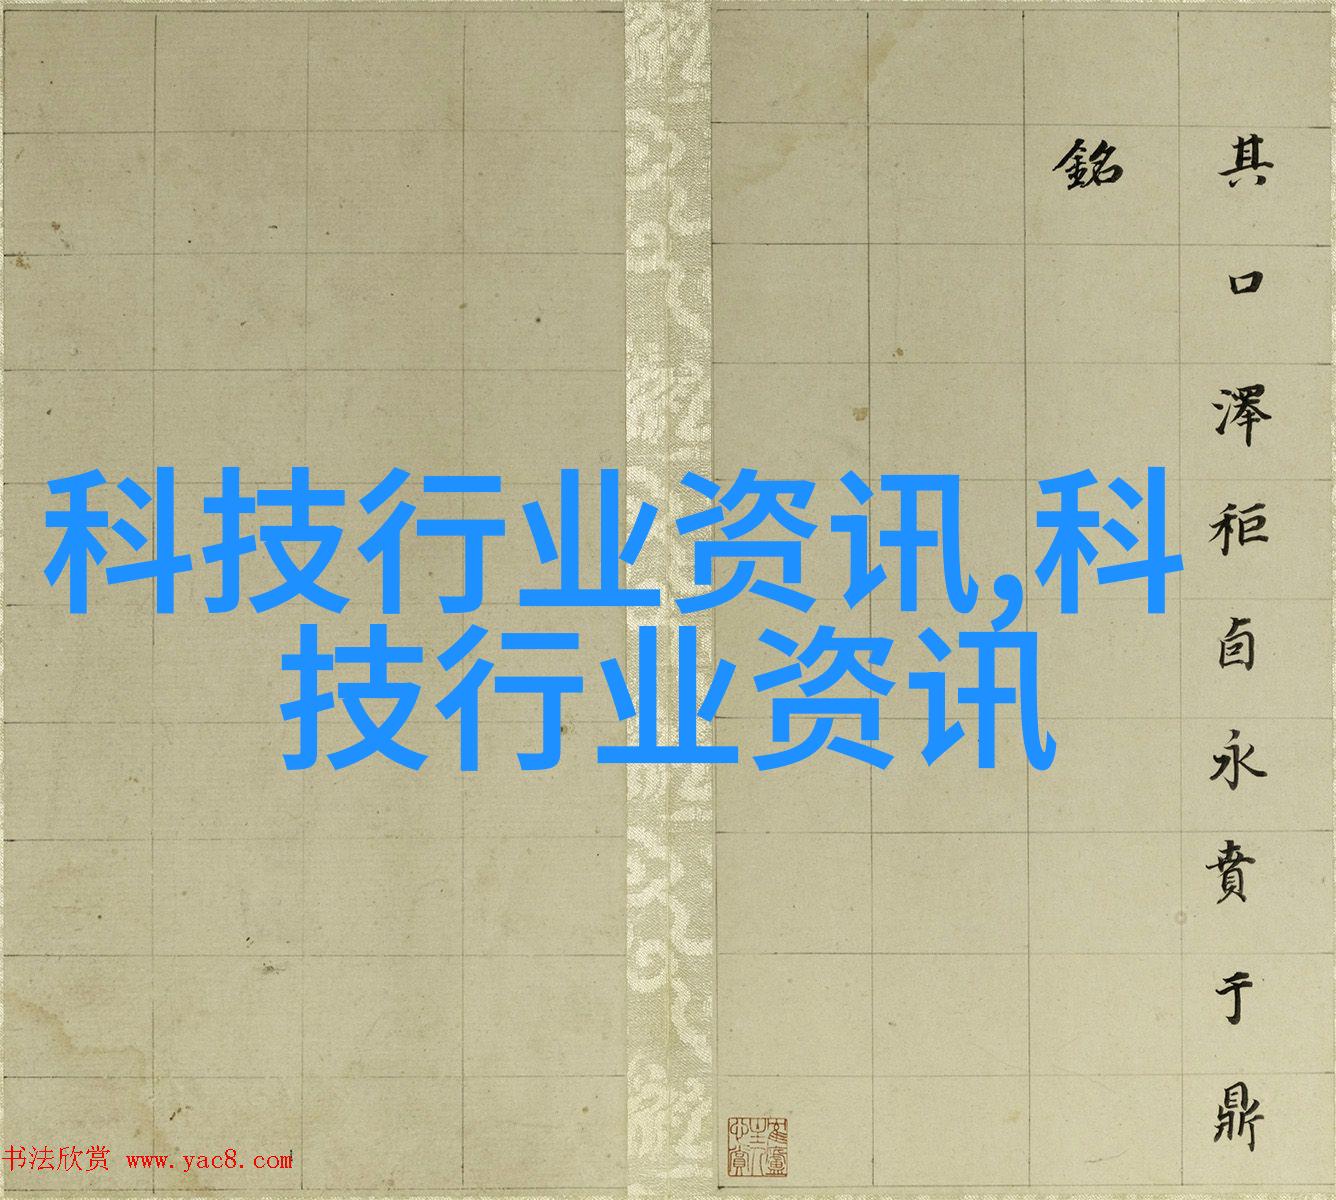 其口澤秬卣永賁于鼎
銘
科技行业资讯,科
技行业资讯
书法欣赏 www.yac8.com